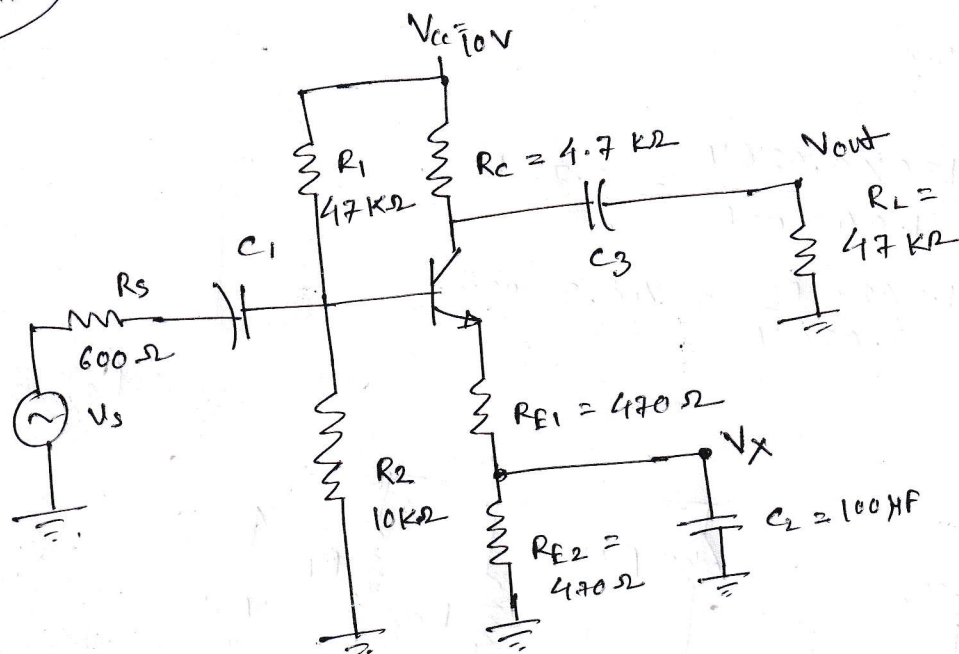 Vcc = 10V
R1
47 KΩ
Rc = 4.7 KΩ
Vout
RL =
47 KΩ
C1
C3
Rs
600 Ω
Vs
RE1 = 470 Ω
Vx
R2
10KΩ
C2 = 100 μF
RE2 =
470 Ω